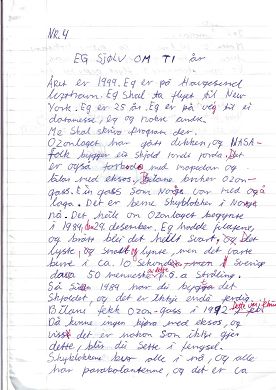 NR.4
EG SJØLV OM TI år
Året er 1999. Eg er på Haugesund
lezthavn. Eg skal ta flyet til New
York. Eg er 25 år. Eg er på veg til ei
datamesse, eg og nokre andre.
Me skal skrive program der.
Ozonlaget har gått dukken, og NASA-
folk bygger eit skjold rondt jorda. Det
er også forbode med mopedar og
bilar med eksos. Bilane bruker Ozon-
gass. Ein gass som Norge var med og
laga. Det er berre skyblokker i Norge
nå. Det hele om Ozonlaget begynte
i 1989, 29. desember. Eg hadde
og brått blei det heilt svart, og
lyst, og svart og lyst, men det varte
berre i ca. 10 sekund
døde 50 menneske p.g.a stråling.
Så siden 1989 har du bygget det
skjoldet, og det er ikkje enda ferdig.
Bilane fekk Ozon-gass i 1992
Då kunne ingen kjøra med eksos, og
visst det er nokon som ikkje gjer
dette, blir du sett i fengsel.
Skyblokkene bur alle i nå, og alle
har parabolantenne, og det er ca